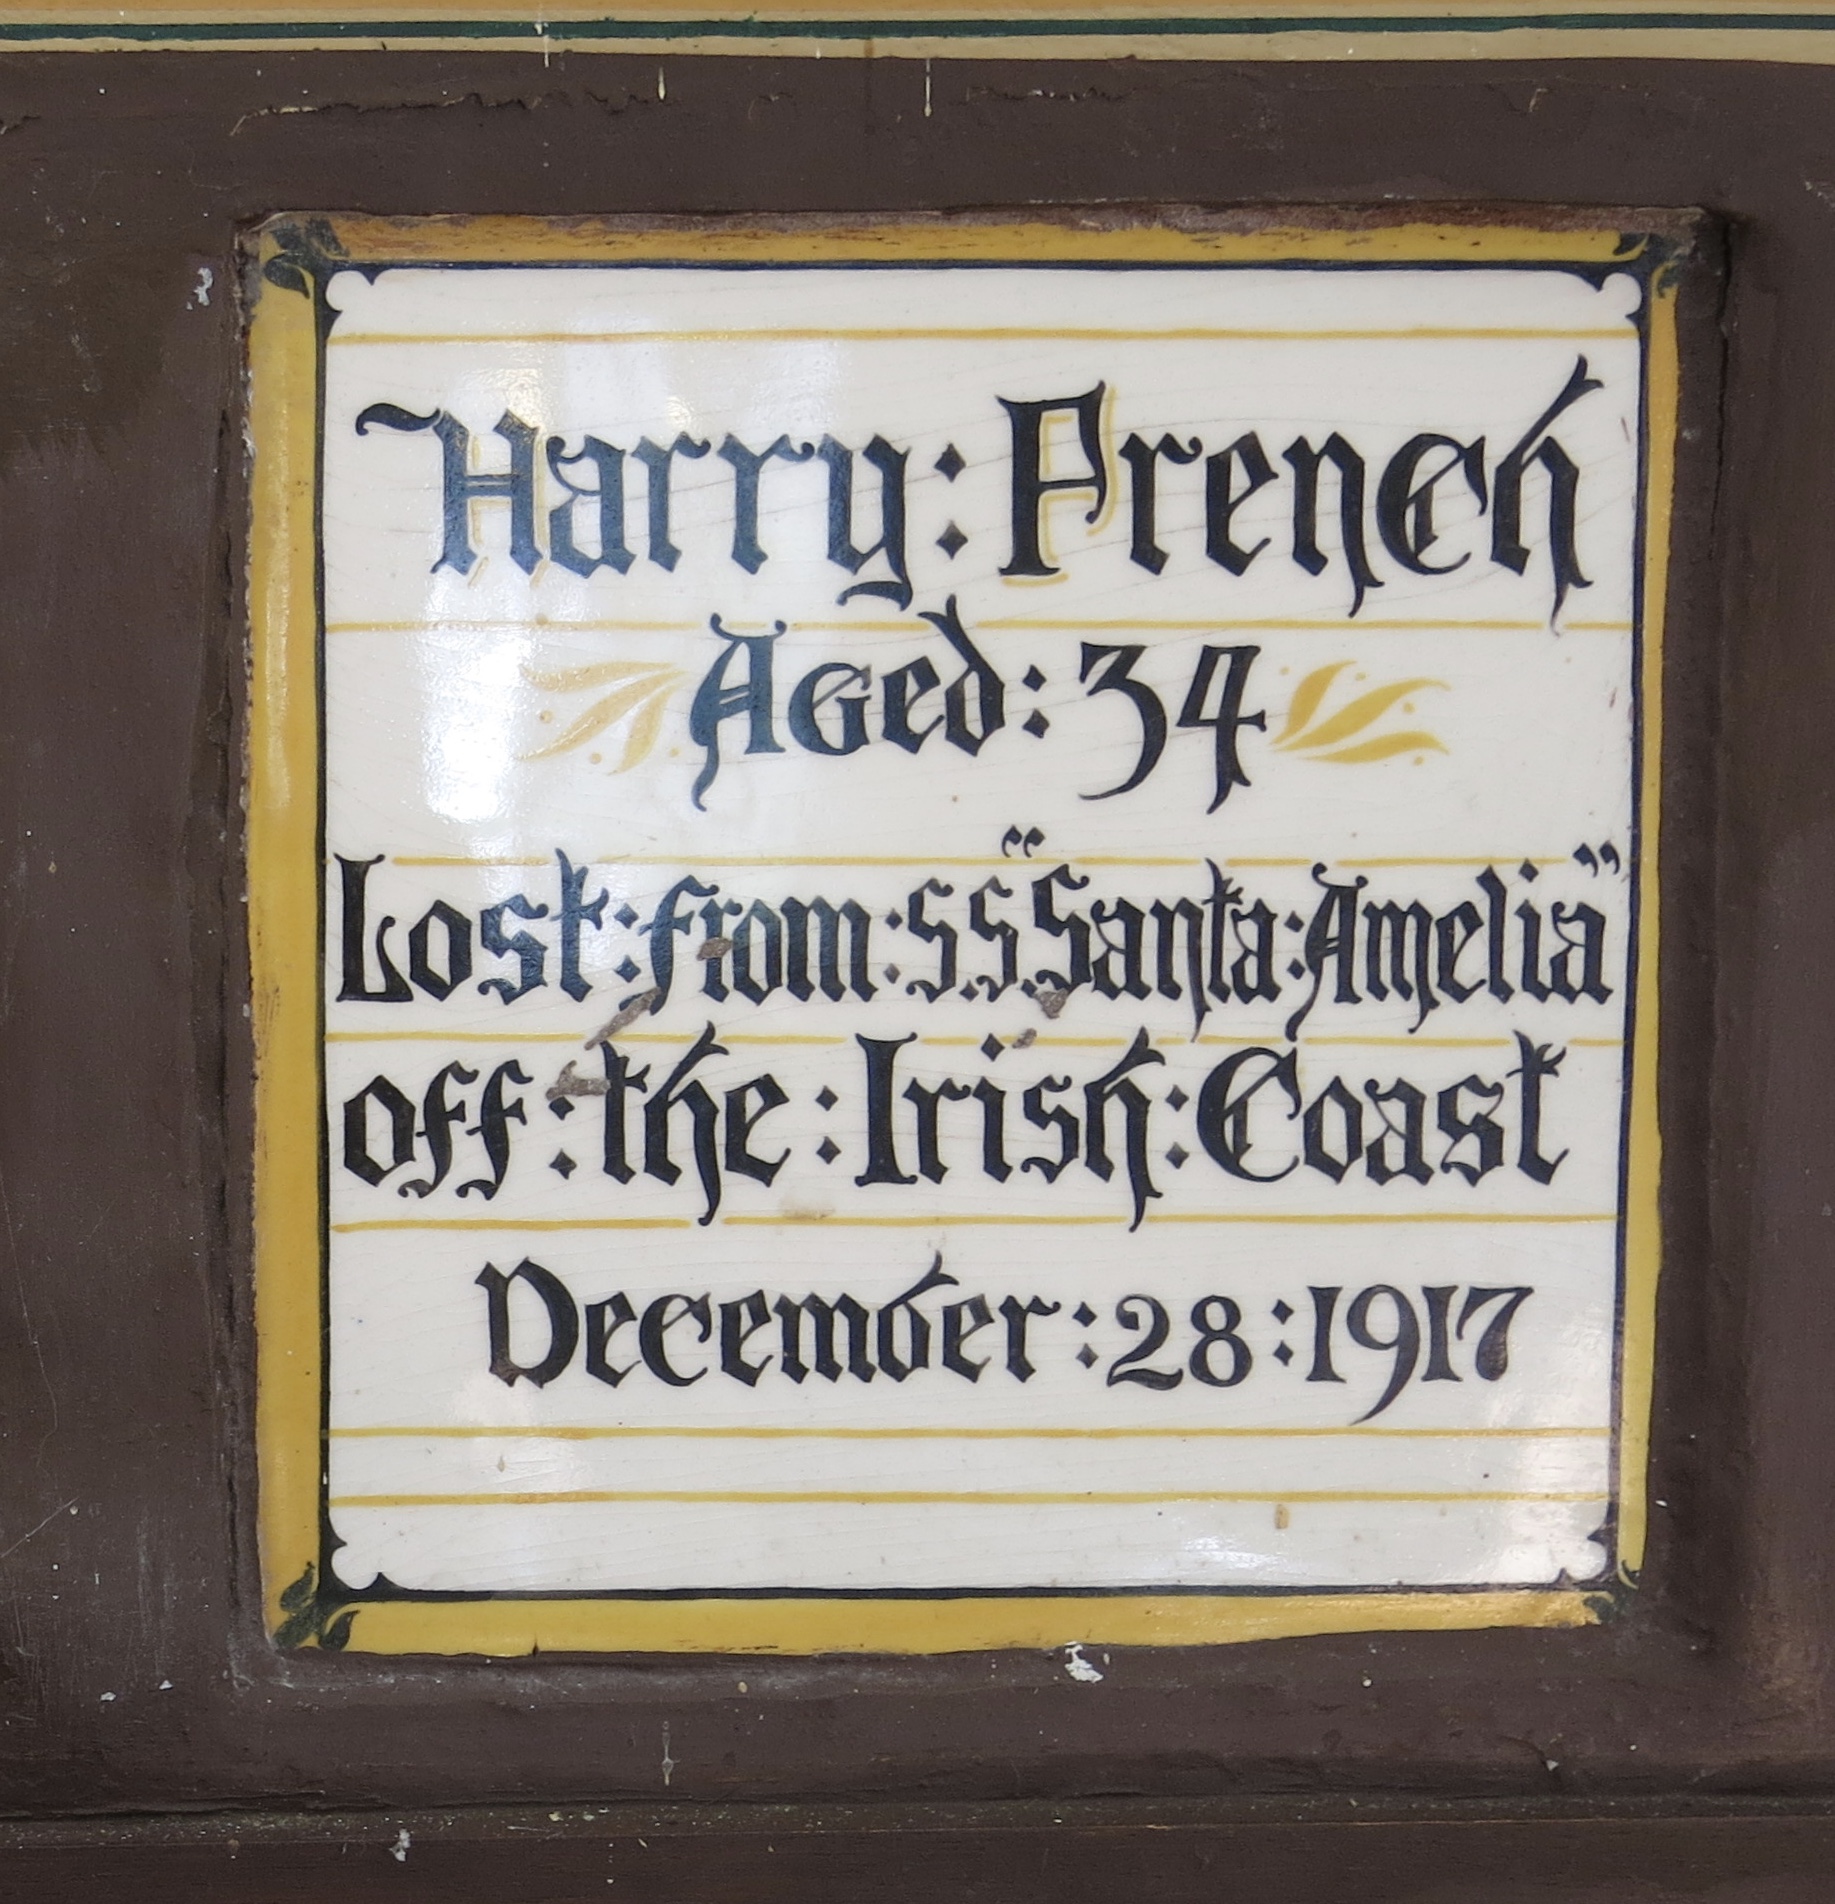 Harry: French
Aged: 34
Lost: from: S.S. "Santa: Amelia"
off: the: Irish: Coast
December: 28: 1917